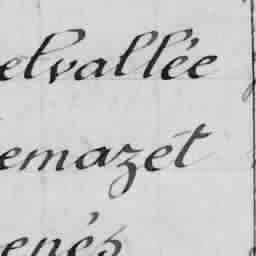 elvallée
emazet
enés